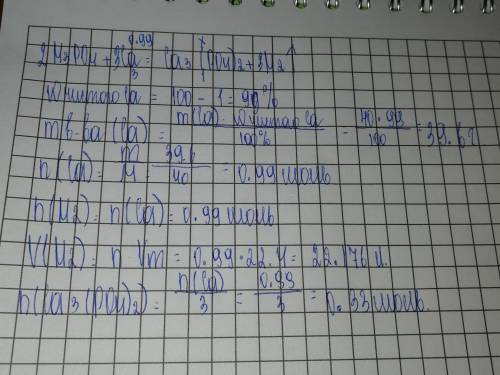 0.99 x
2H3PO4 + 3Ca = Ca3(PO4)2 + 3H2↑
3 1
W чистого Ca = 100 - 1 = 99%
m в-ва (Ca) = m(Ca) · W чистого Ca / 100% = 40 · 99 / 100 = 39.6г
n(Ca) = m / M = 39.6 / 40 = 0.99 моль
n(H2) = n(Ca) = 0.99 моль
V(H2) = n · Vm = 0.99 · 22.4 = 22.176 л.
n(Ca3(PO4)2) = n(Ca) / 3 = 0.99 / 3 = 0.33 моль.